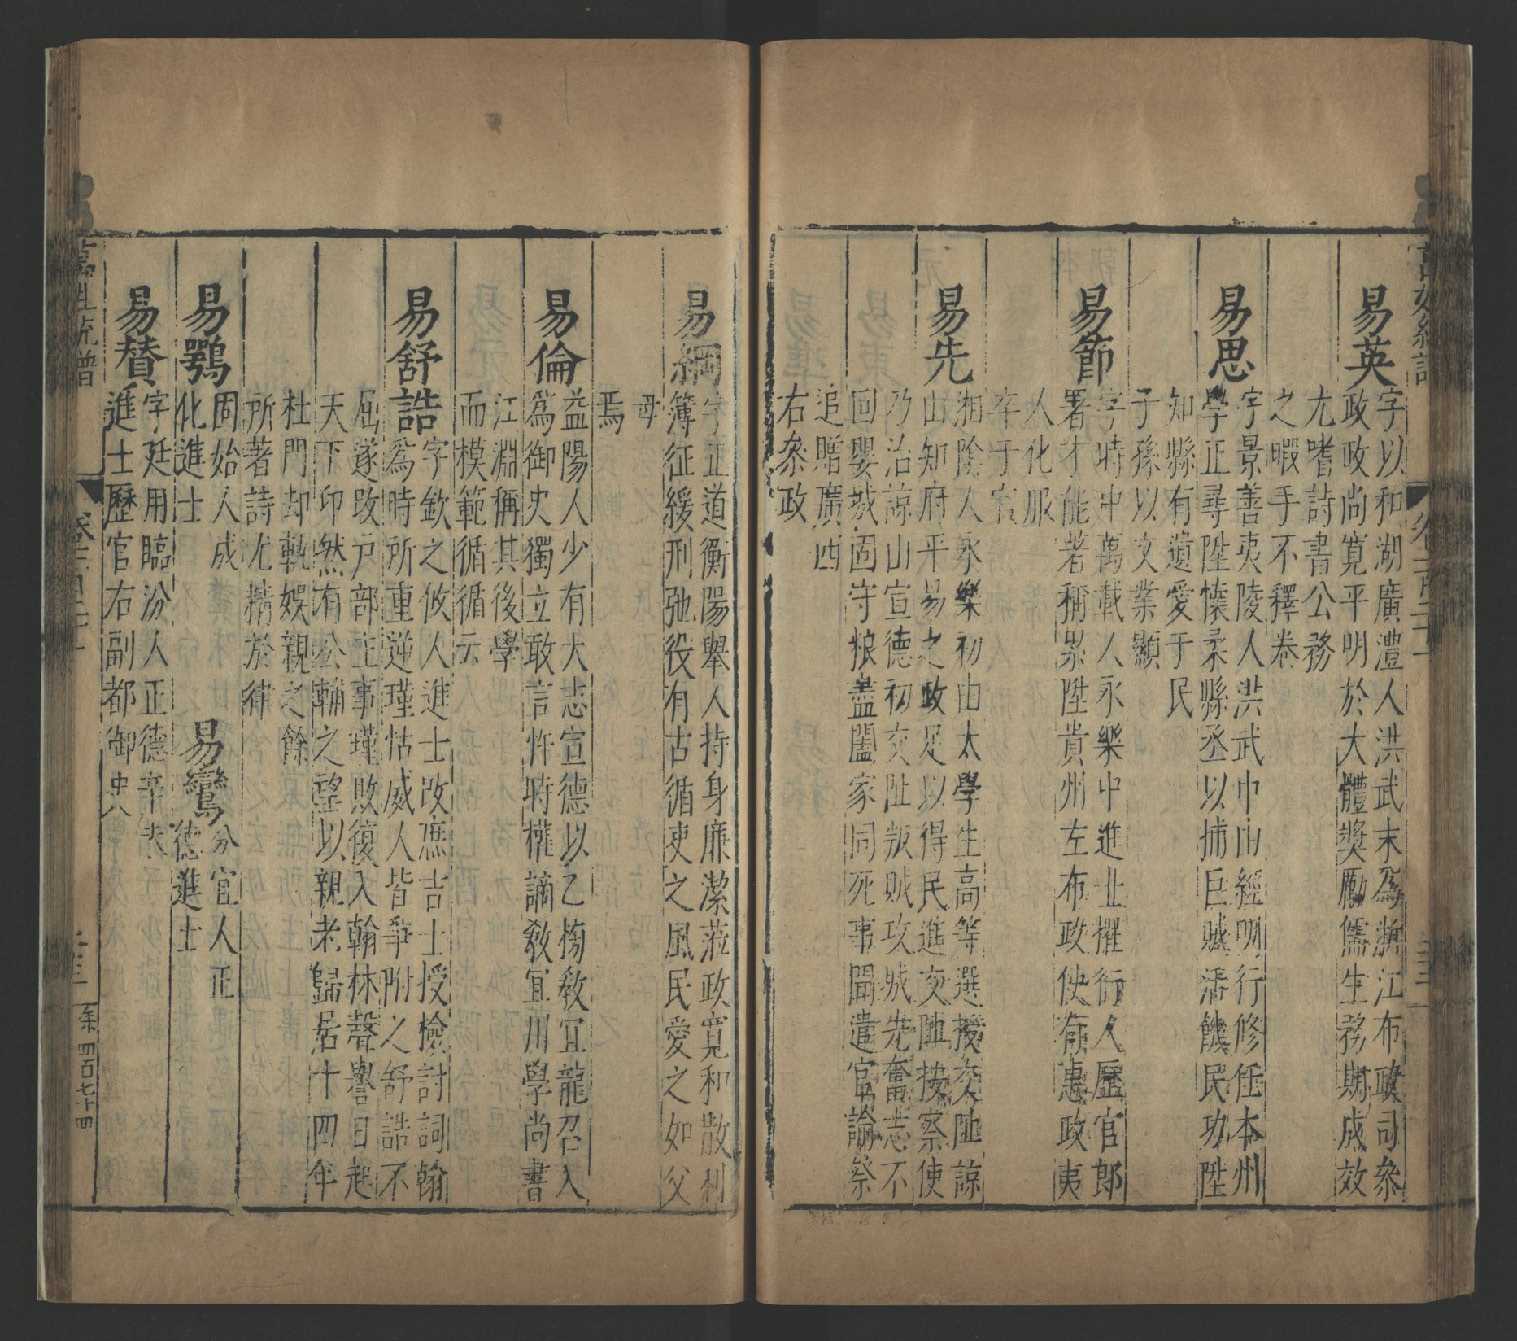 易英
字以和湖廣澧人洪武末為浙江布政司叅
政政尚寬平明於大體獎勵儒生務期成效
尤嗜詩書公務
之暇手不釋卷
易思
字景善夷陵人洪武中由經明行修任本州
學正尋陞懷柔縣丞以捕巨賊潘饒民功陞
知縣有遺愛于民
子孫以文業顯
易節
字時中萬載人永樂中進士擢行人歷官郎
署才能著稱累陞貴州左布政使有惠政夷
人化服
卒于官
易先
湘陰人永樂初由太學生高等選授交阯諒
山知府平易之政足以得民進交阯按察使
乃治諒山宣德初交阯叛賊攻城先奮志不
回嬰城固守粮盡闔家同死事聞遣官諭祭
追贈廣西
右叅政
易綱
字正道衡陽舉人持身廉潔蒞政寬和散利
簿征緩刑弛役有古循吏之風民愛之如父
母
焉
易倫
益陽人少有大志宣德以乙榜教宜龍召入
為御史獨立敢言忤時權謫教宜川學尚書
江淵稱其後學
而模範循循云
易舒誥
字欽之攸人進士改庶吉士授檢討詞翰
為時所重逆瑾怙威人皆爭附之舒誥不
屈遂改戶部主事瑾敗復入翰林聲譽日起
天下卬然有公輔之望以親老歸居十四年
杜門却軌娛親之餘
所著詩尤精於律
易鶚
固始人成
化進士
易鸞
分宜人正
德進士
易贊
字廷用臨汾人正德辛未
進士歷官右副都御史
萬姓統譜